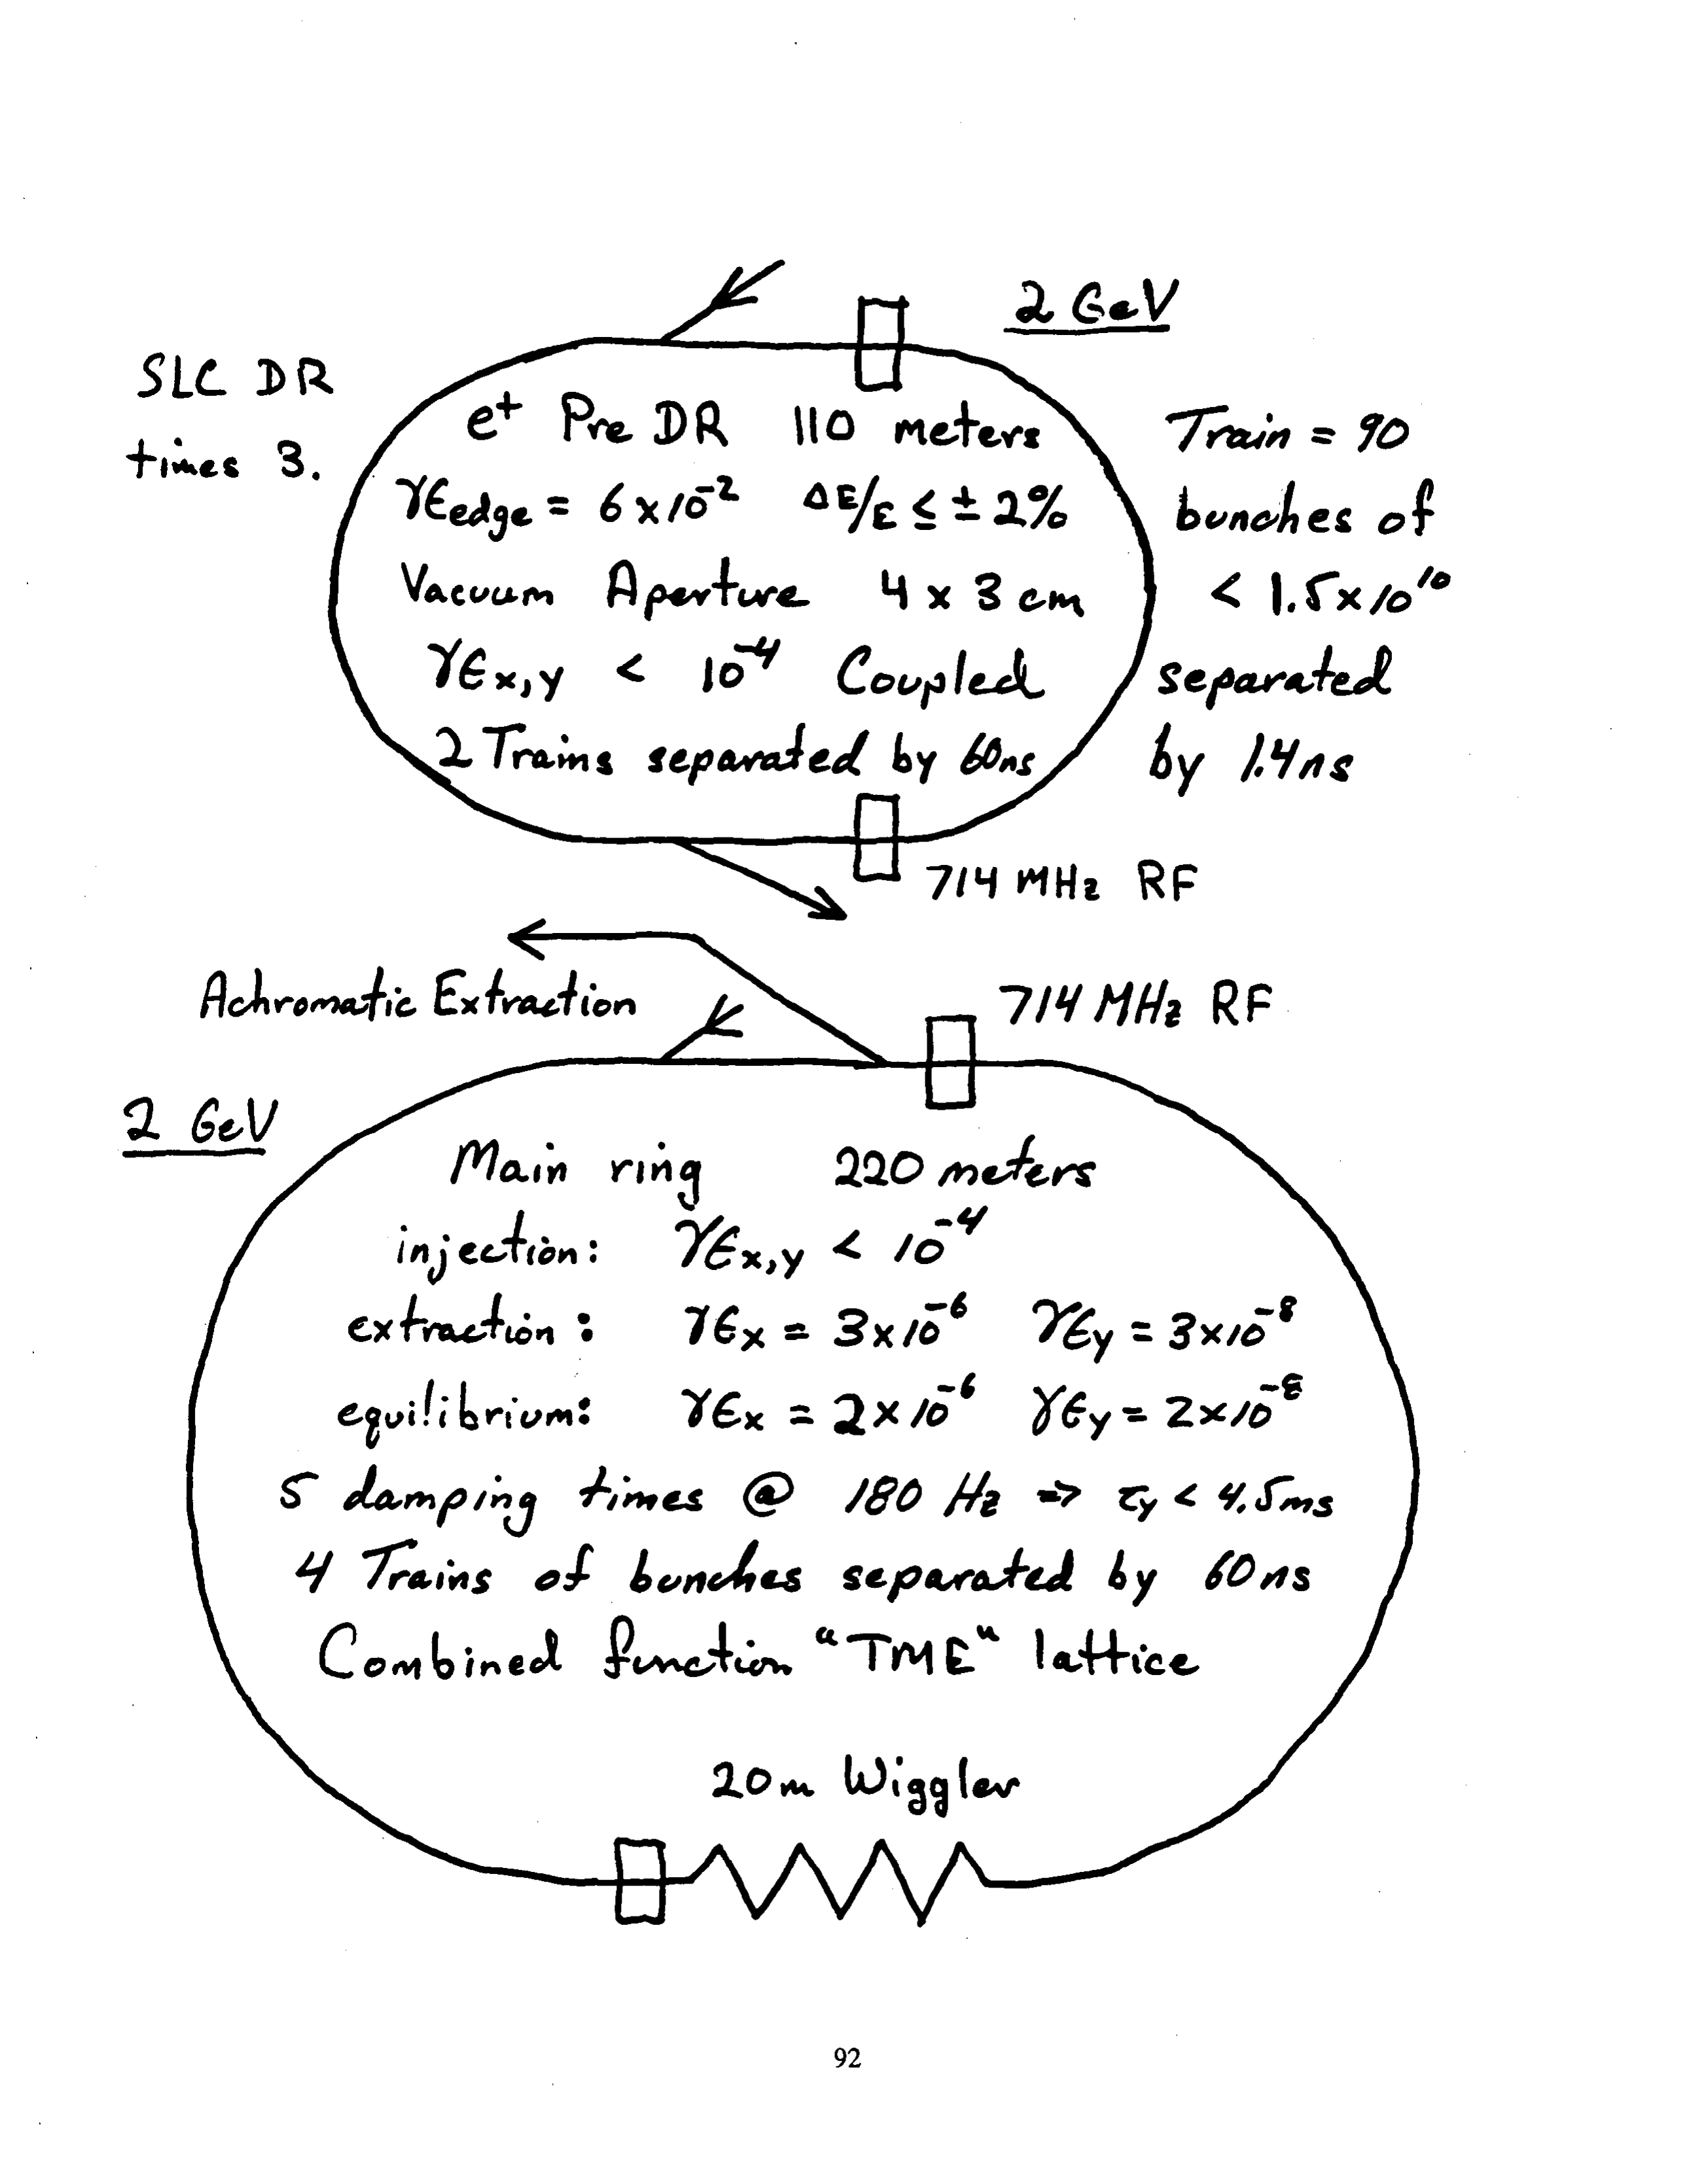 2 GeV
SLC DR
times 3.
e⁺ Pre DR 110 meters
γϵedge = 6 x 10⁻² ΔE/E ≤ ± 2%
Vacuum Aperture 4 x 3 cm
γϵx,y < 10⁻⁴ Coupled
2 Trains separated by 60ns
Train = 90
bunches of
< 1.5 x 10¹⁰
separated
by 1.4ns
714 MHz RF
Achromatic Extraction
714 MHz RF
2 GeV
Main ring 220 meters
injection: γϵx,y < 10⁻⁴
extraction: γϵx = 3x10⁻⁶ γϵy = 3x10⁻⁸
equilibrium: γϵx = 2 x 10⁻⁶ γϵy = 2x10⁻⁸
5 damping times @ 180 Hz => τy < 4.5ms
4 Trains of bunches separated by 60ns
Combined function "TME" lattice
20m Wiggler
92